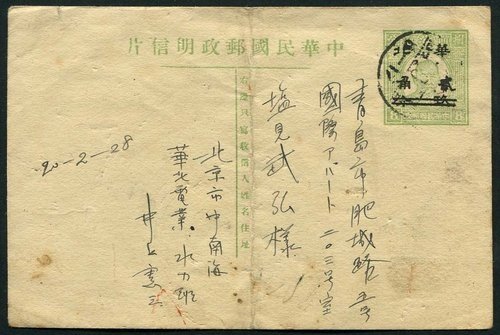 片信明政郵國民華中
右邊只寫收信人姓名住址
華北
貳
角
青島市肥城路
國際アパート二〇三号室
塩見武弘様
北京市中南海
華北電業 水力班
井上憲三
20-2-28